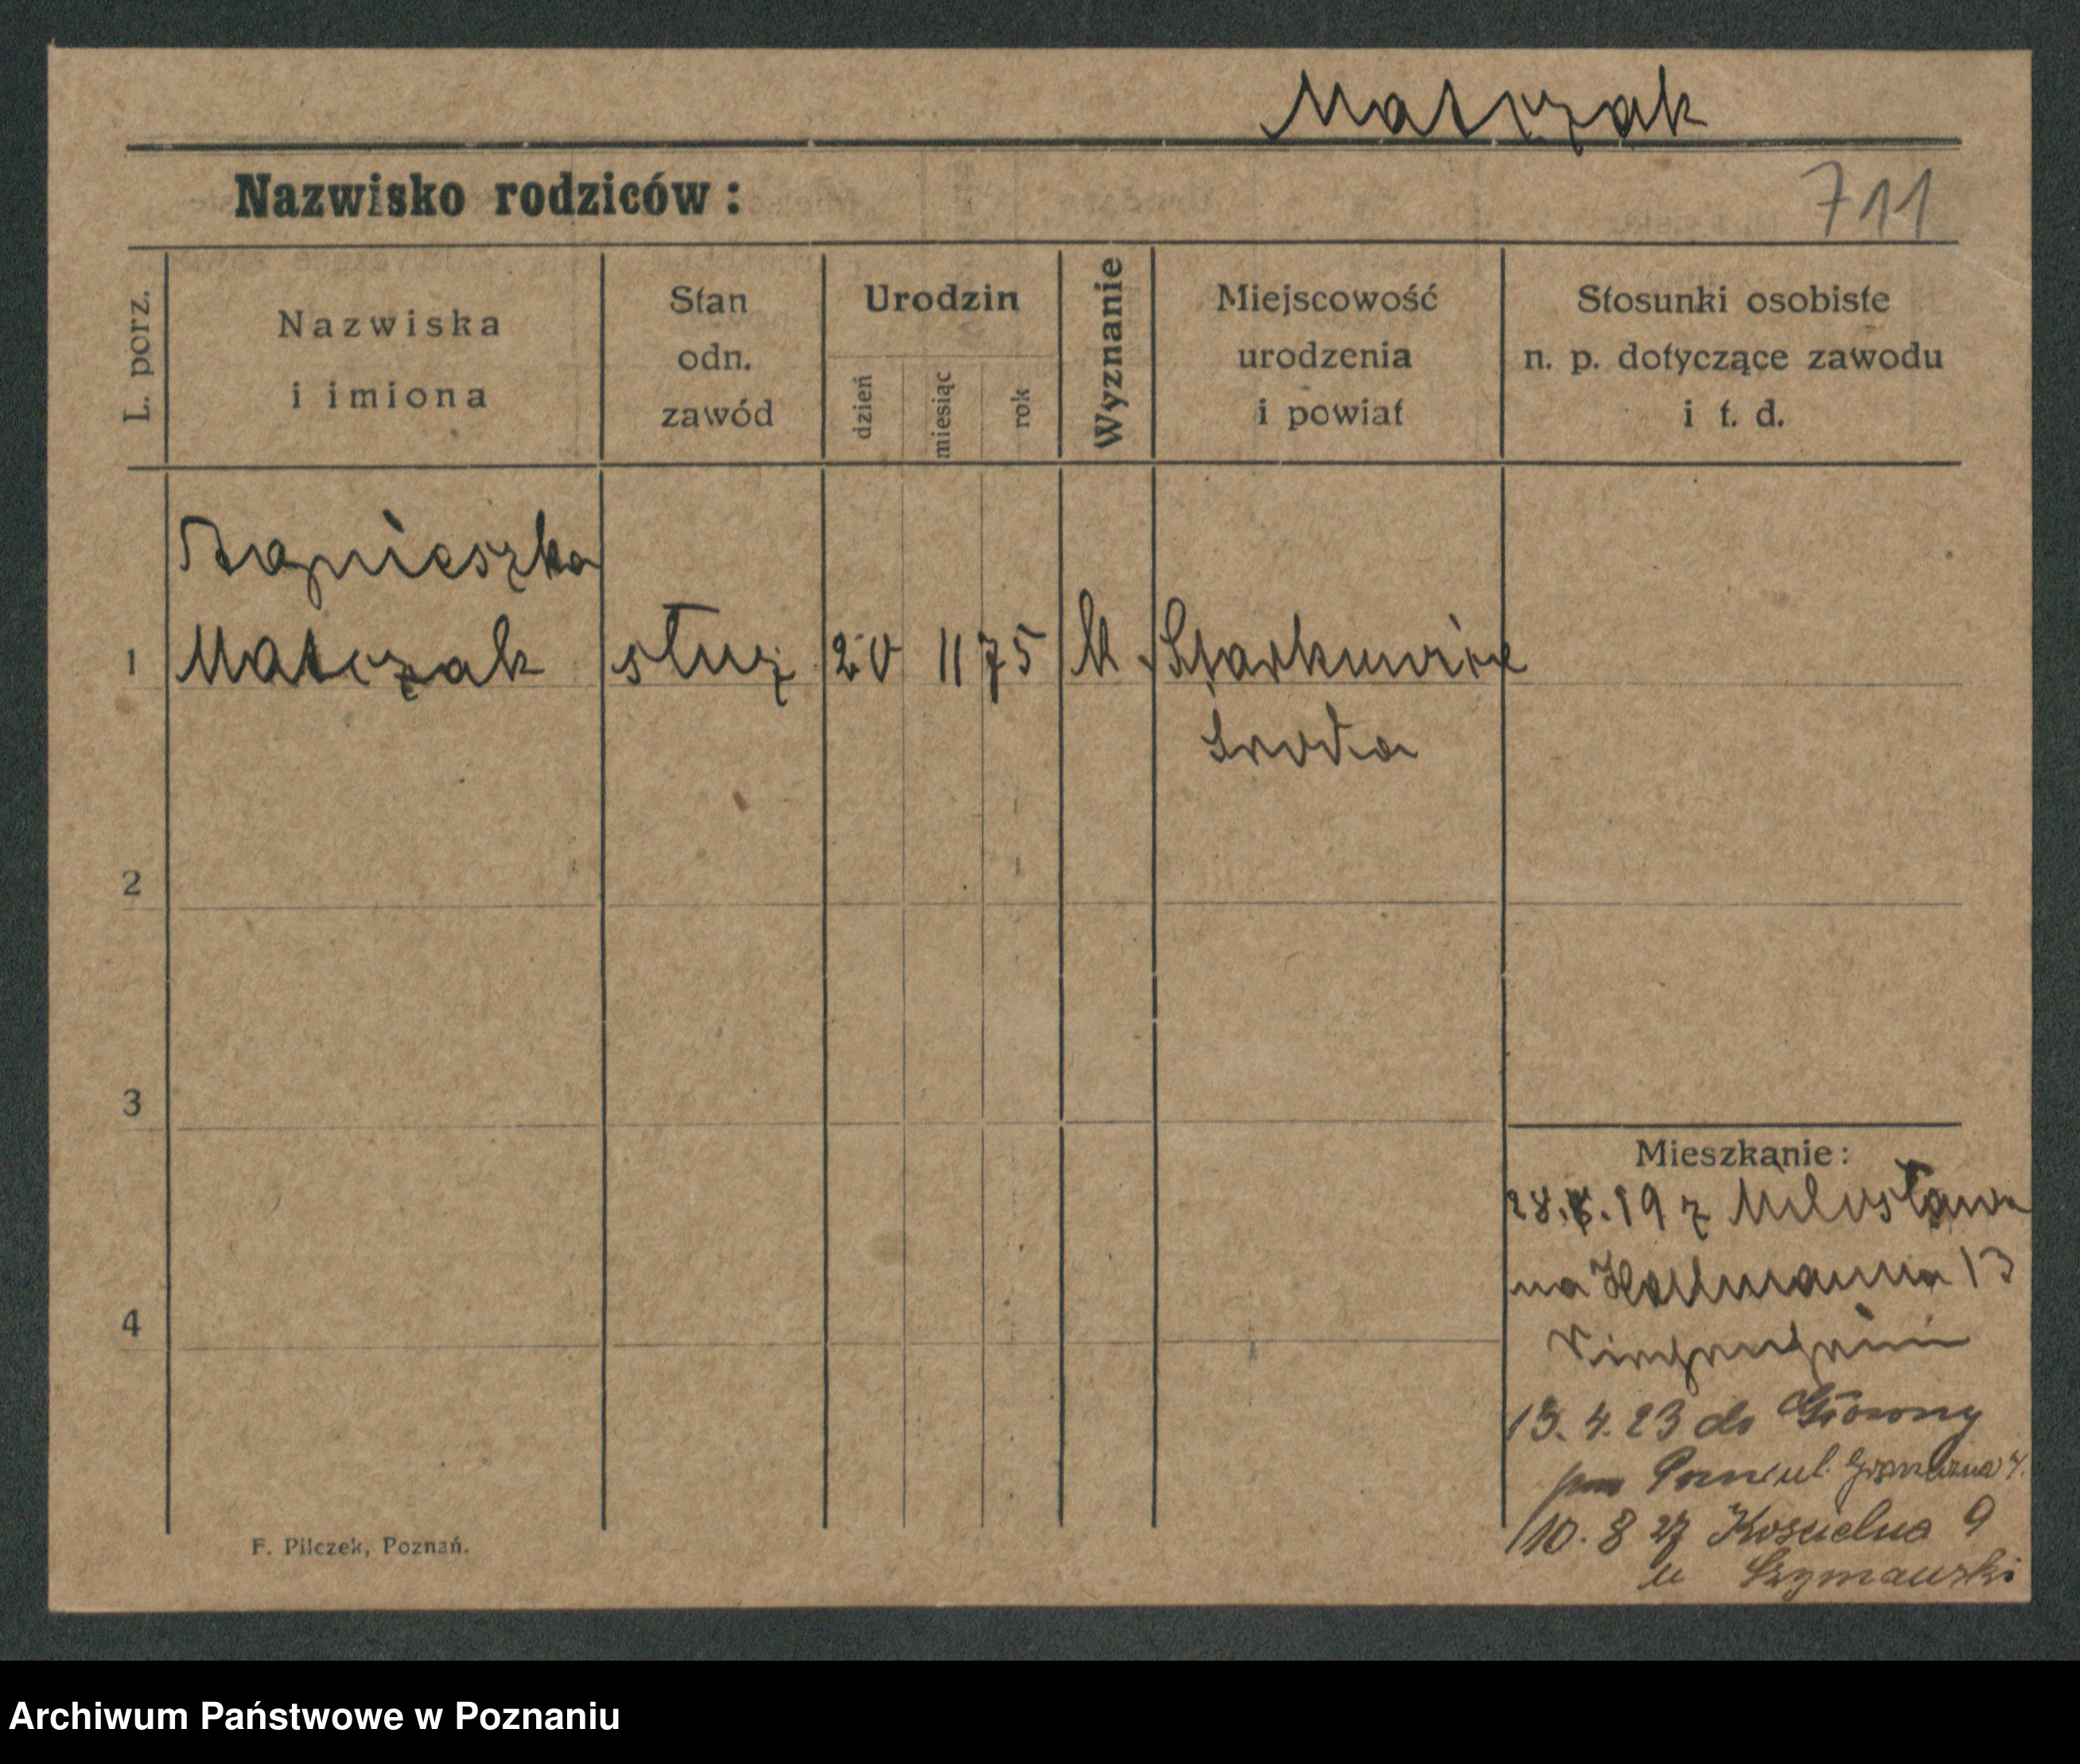 Matczak
Nazwisko rodziców:
711
L. porz.
Nazwiska
i imiona
Stan
odn.
zawód
Urodzin
dzień
miesiąc
rok
Wyznanie
Miejscowość
urodzenia
i powiat
Stosunki osobiste
n. p. dotyczące zawodu
i t. d.
Agnieszka
1 Matczak służ 20 11 75 k
Środa
2
3
4
Mieszkanie:
19 z Miłosławia
na 13
13. 4. 23 do
Pozn ul. 4.
10. 8 27 Koscielna 9
u Szymanski
F. Pilczek, Poznań.
Archiwum Państwowe w Poznaniu